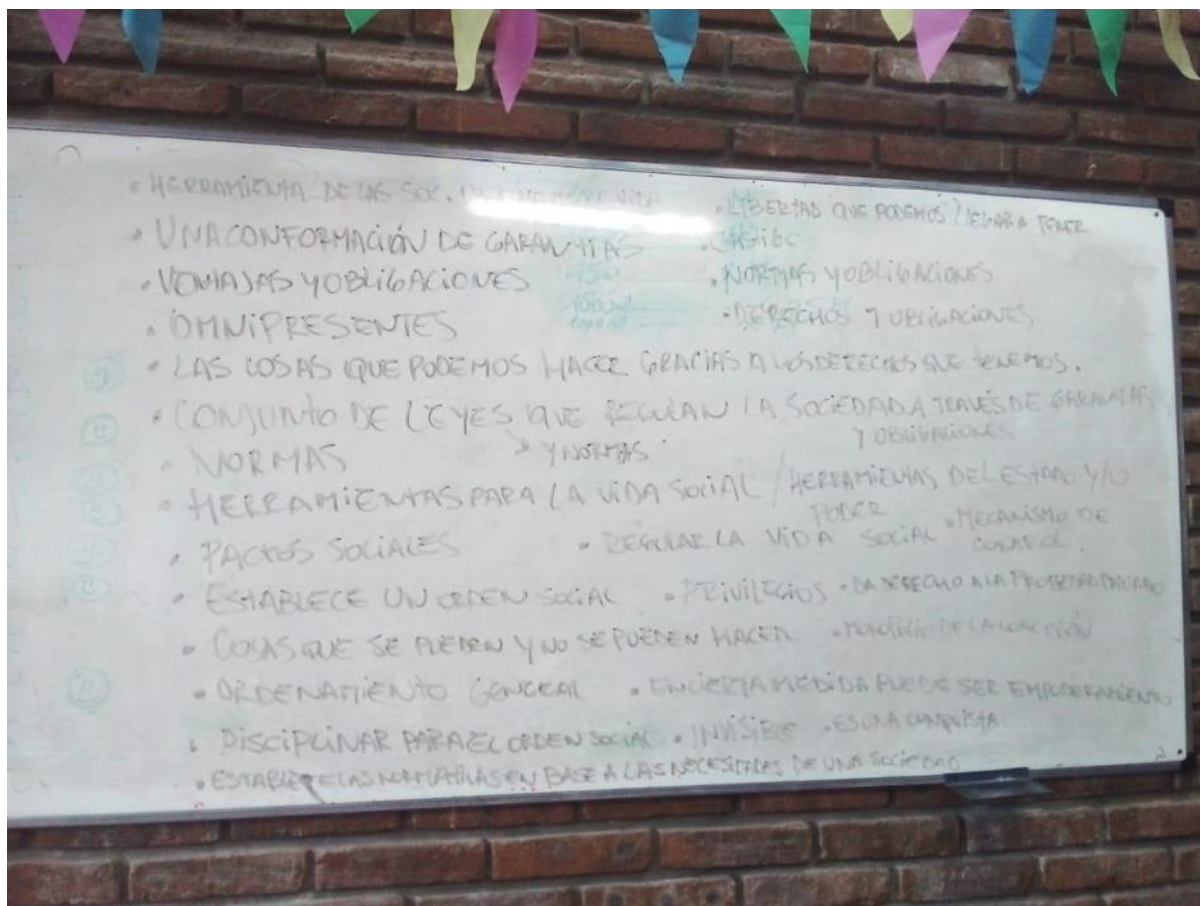 • HERRAMIENTA DE LAS SOC. • LIBERTAD QUE PODEMOS LLEGAR A TENER
• UNA CONFORMACIÓN DE GARANTÍAS • CASTIGO
• VENTAJAS Y OBLIGACIONES • NORMAS Y OBLIGACIONES
• OMNIPRESENTES • DERECHOS Y OBLIGACIONES
• LAS COSAS QUE PODEMOS HACER GRACIAS A LOS DERECHOS QUE TENEMOS.
• CONJUNTO DE LEYES QUE REGULAN LA SOCIEDAD A TRAVÉS DE GARANTÍAS
Y OBLIGACIONES
• NORMAS Y NORMAS
• HERRAMIENTAS PARA LA VIDA SOCIAL / HERRAMIENTAS DEL ESTADO Y/O
PODER
• PACTOS SOCIALES • REGULAR LA VIDA SOCIAL • MECANISMO DE
CONTROL.
• ESTABLECE UN ORDEN SOCIAL • PRIVILEGIOS • DA DERECHO A LA PROPIEDAD PRIVADA
• COSAS QUE SE PUEDEN Y NO SE PUEDEN HACER • MONOPOLIO DE LA COACCIÓN
• ORDENAMIENTO GENERAL • EN CIERTA MEDIDA PUEDE SER EMPODERAMIENTO
• DISCIPLINAR PARA EL ORDEN SOCIAL • INVISIBLE • ES UNA CONQUISTA
• ESTABLECE LAS NORMATIVAS EN BASE A LAS NECESIDADES DE UNA SOCIEDAD